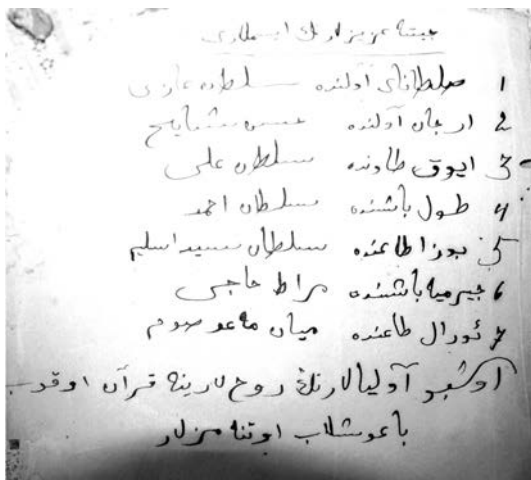 عزيزلرنڭ ايسملارى
1 صلطانای آولنده سلطان غازى
2 ارجان آولنده حسن مشايخ
3 ايوق طاونده سلطان على
4 طول باشنده سلطان احمد
5 بورا طاعنده سلطان سيد اسليم
6 جيرميه باشنده مراط حاجى
7 ئورال طاعنده ميان ماعوصوم
اوشبو آوليالارنڭ روح لارينه قرآن اوقوب
باغوشلاب اوتنه مزلار